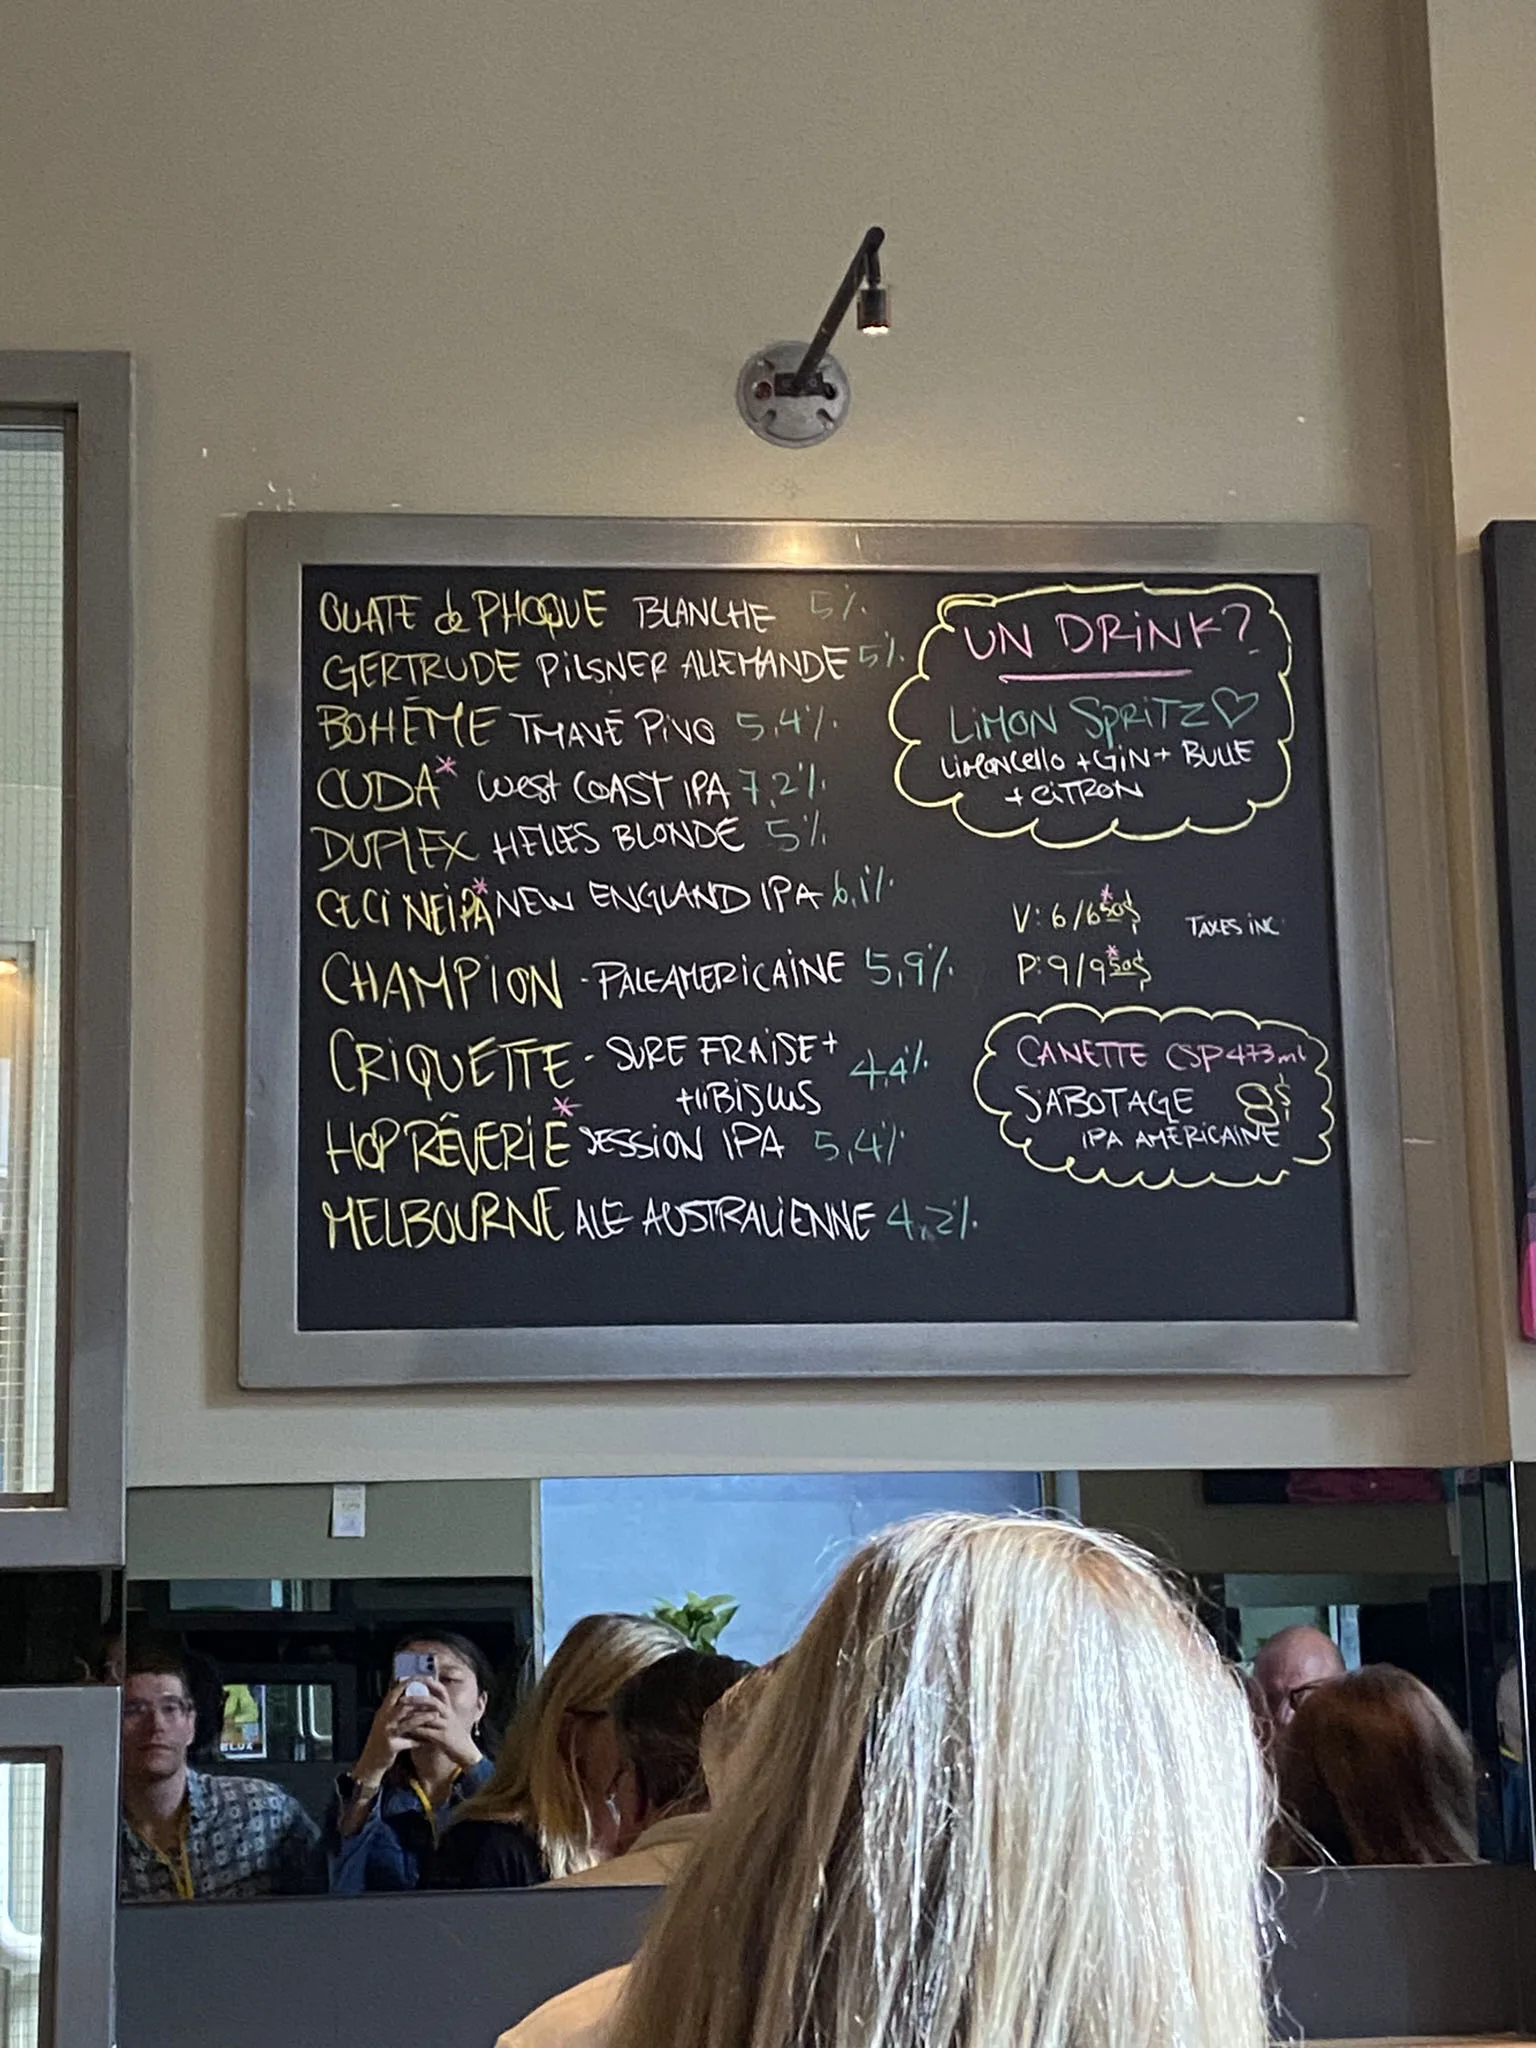 OUATE de PHOQUE BLANCHE 5%
GERTRUDE PILSNER ALLEMANDE 5%
BOHÊME TMAVÉ PIVO 5,4%
CUDA* West COAST IPA 7,2%
DUPLEX HELLES BLONDE 5%
CECI NEIPA* NEW ENGLAND IPA 6,1%
CHAMPION - PALE AMERICAINE 5,9%
CRIQUETTE - SURE FRAISE +
HIBISCUS 4,4%
HOP RÊVERIE* SESSION IPA 5,4%
MELBOURNE ALE AUSTRALIENNE 4,2%
UN DRINK?
LIMON SPRITZ
Limoncello + GIN + BULLE
+ CITRON
V: 6/6 50$* TAXES INC
P: 9/9 50$*
CANETTE CSP 473ml
SABOTAGE 8$
IPA AMÉRICAINE